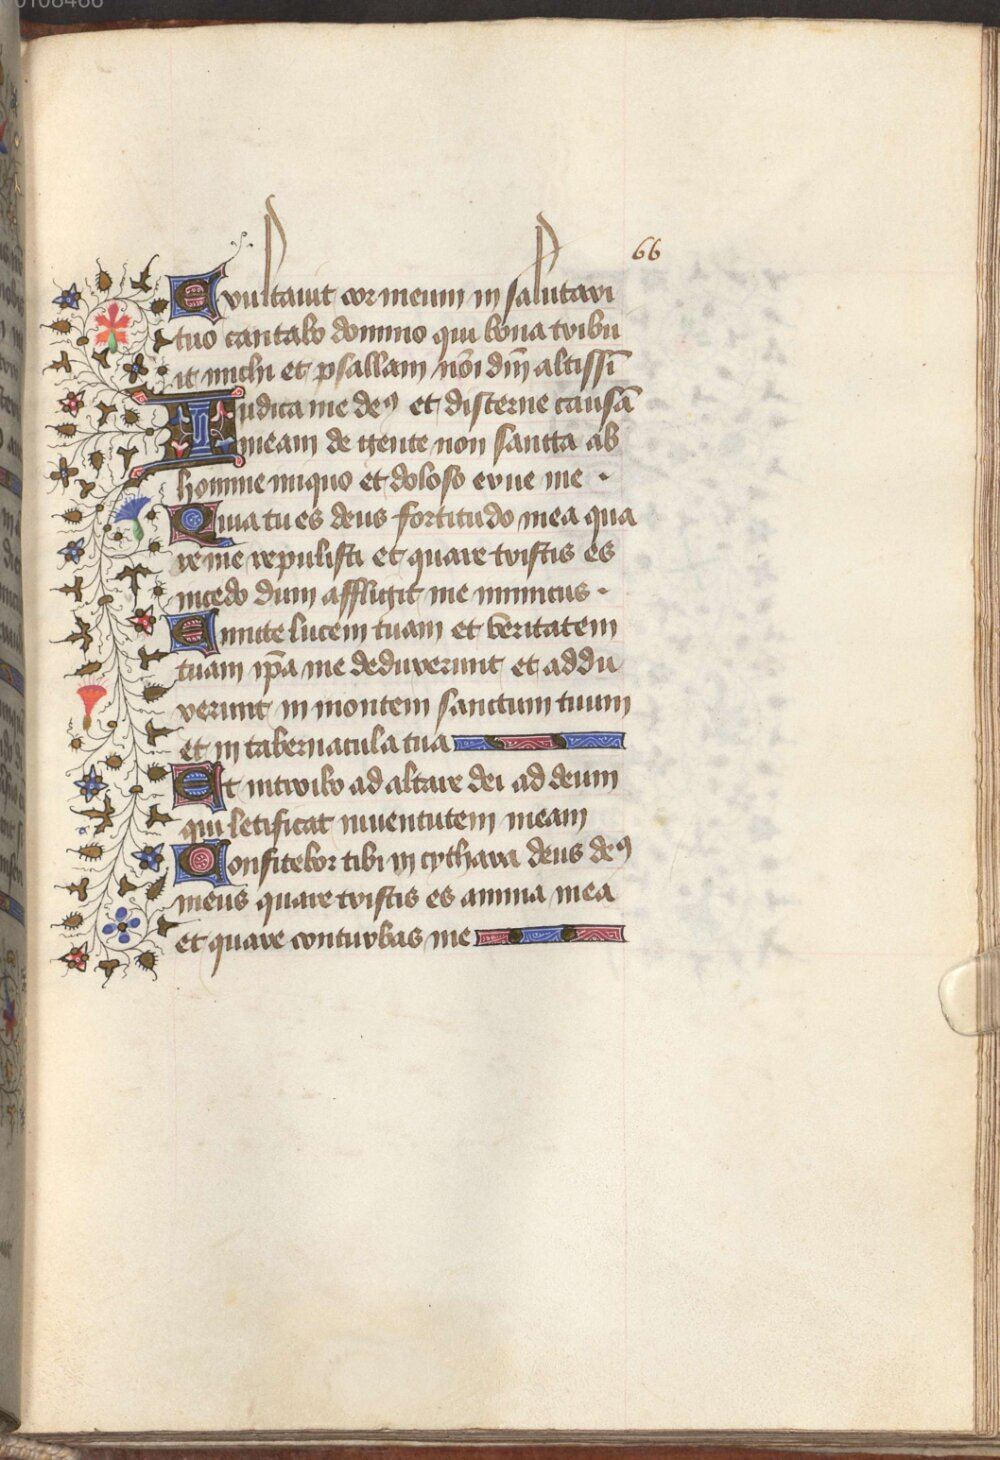 0108466
66
Exultauit cor meum in salutari
tuo cantabo domino qui bona tribu
it michi et psallam nōi dm̄ altissī
Iudica me de⁹ et discerne causā
meam de gente non sancta ab
homine iniquo et doloso erue me ·
Quia tu es deus fortitudo mea qua
re me repulisti et quare tristis es
incedo dum affligit me inimicus ·
Emitte lucem tuam et veritatem
tuam ip̄a me deduxerunt et addu
xerunt in montem sanctum tuum
et in tabernacula tua
Et introibo ad altare dei ad deum
qui letificat iuuentutem meam
Confitebor tibi in cythara deus de⁹
meus quare tristis es anima mea
et quare conturbas me